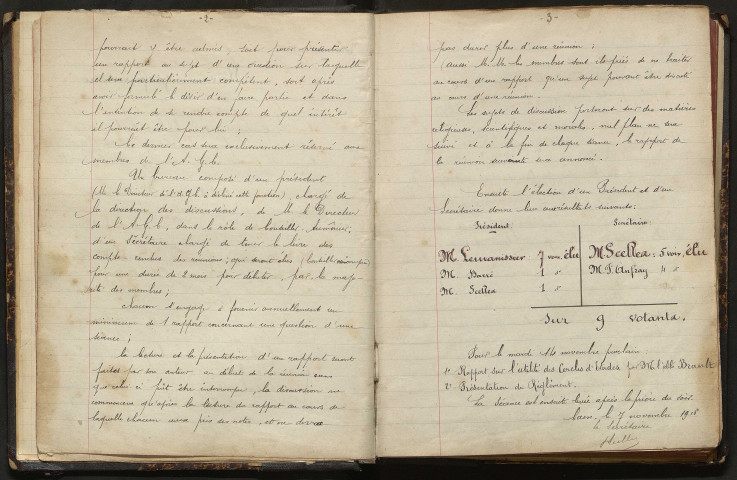 -2-
pourrait y être admis, soit pour présenter
un rapport au sujet d'une question sur laquelle
il sera particulièrement compétent, soit après
avoir formulé le désir d'en faire partie et dans
l'intention de se rendre compte de quel intérêt
il pourrait être pour lui ;
Ce dernier cas sera exclusivement réservé aux
membres de l'A.G.C.
Un bureau composé d'un président
(M. le Directeur de l'A.G.C. a décliné cette fonction), chargé de
la direction des discussions, de M. le Directeur
de l'A.G.C., dans le rôle de conseiller,
d'un Secrétaire chargé de tenir le livre des
comptes-rendus des réunions, qui seront élus
pour une durée de 2 mois pour débuter, par la majo-
rité des membres ;
Chacun s'engage à fournir annuellement un
minimum de 1 rapport concernant une question d'une
séance ;
La lecture et la présentation d'un rapport seront
faites par son auteur au début de la réunion sans
que celui-ci pût être interrompu, la discussion ne
commencera qu'après la lecture du rapport au cours de
laquelle chacun aura pris ses notes, et ne devra
-3-
pas durer plus d'une réunion ;
(aussi M.M. les membres sont-ils priés de ne traiter
au cours d'un rapport qu'un sujet pouvant être discuté
au cours d'une réunion.
Les sujets de discussion porteront sur des matières
religieuses, scientifiques et morales, nul plan ne sera
suivi et à la fin de chaque séance, le rapport de
la réunion suivante sera annoncé.
Ensuite l'élection d'un Président et d'un
Secrétaire donne lieu aux résultats suivants :
Président Secrétaire
M. Levavasseur 7 voix, élu M. Scellea : 5 voix, élu
M. Barré 1 " M. P. Aufray 4 "
M. Scellea 1 "
Sur 9 votants.
Pour le mardi 14 novembre prochain
1° Rapport sur l'utilité des Cercles d'Etudes par M. l'abbé Brault
2° Présentation du Règlement.
La Séance est ensuite levée après la prière du soir.
Caen, le 7 novembre 1916
le Secrétaire